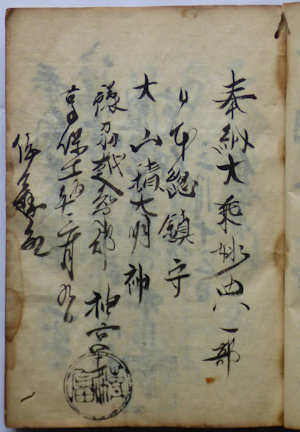 奉納大乗妙典一部
日本總鎮守
大山積大明神
豫州越智郡 神宮寺
享保年二月九日